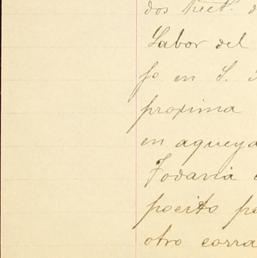 dos
Labor del
en S.
proxima
en aqueya
Todavia
pocito pe
otro corra